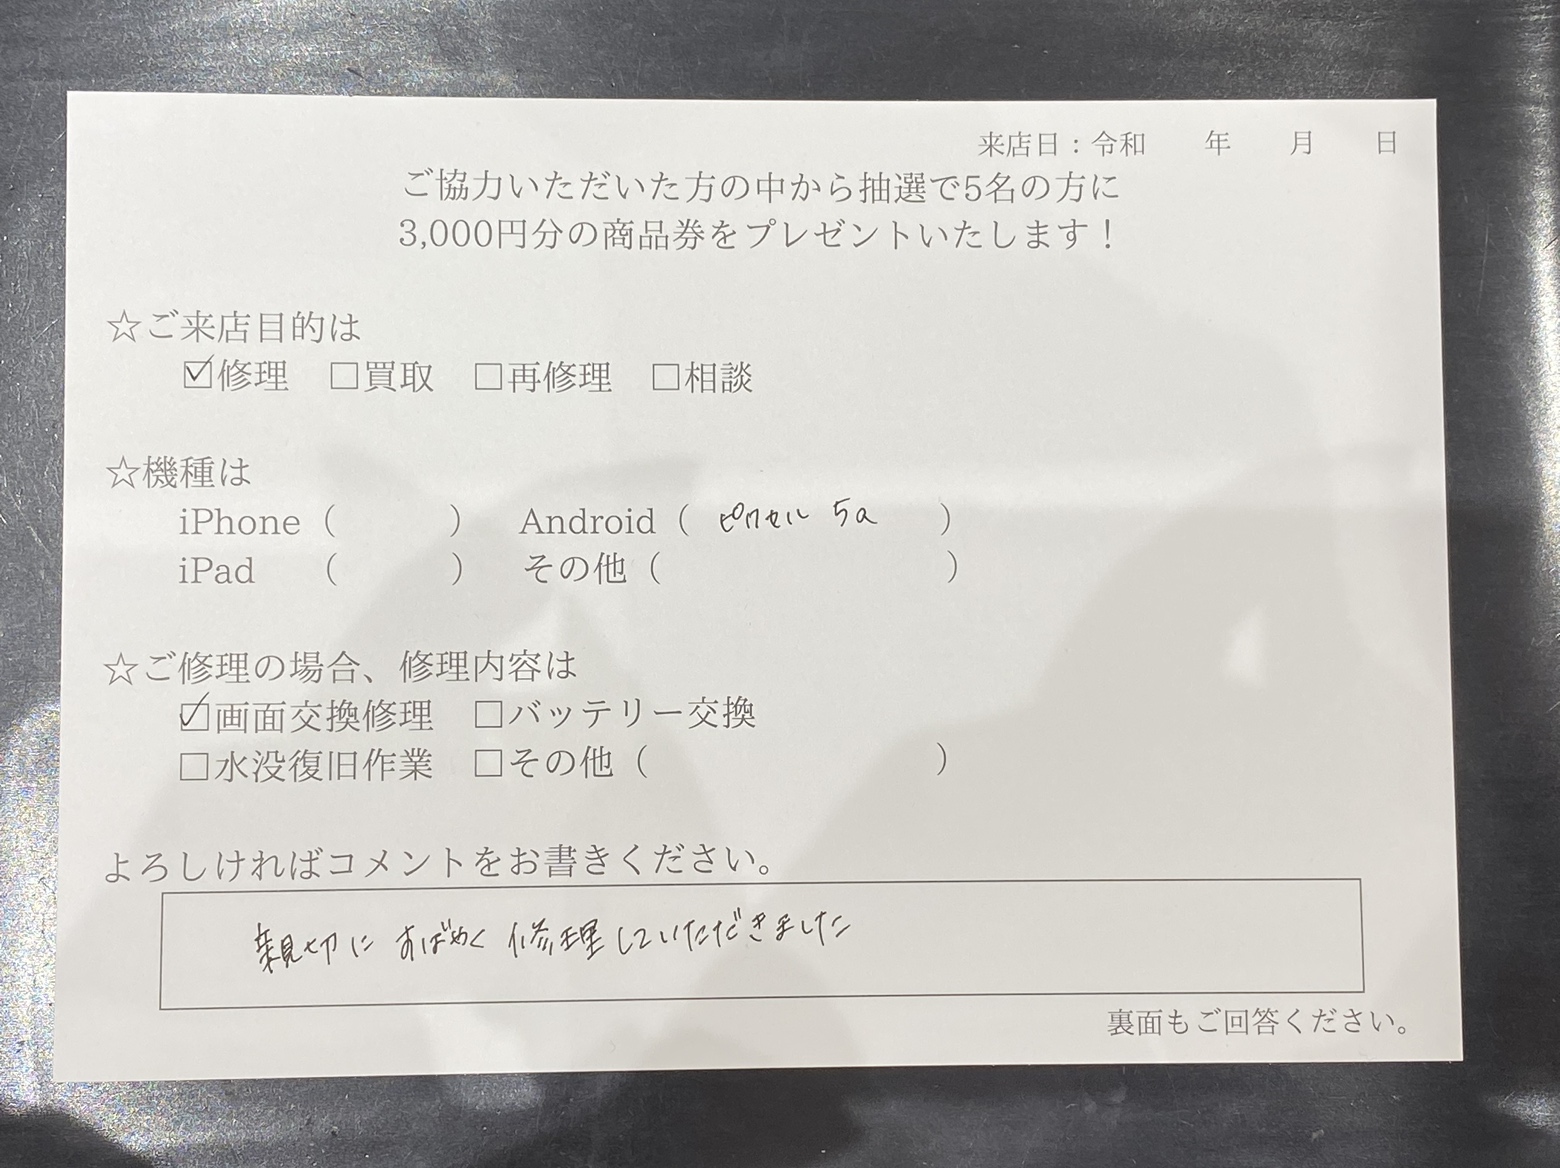 来店日：令和　　年　　月　　日
ご協力いただいた方の中から抽選で5名の方に
3,000円分の商品券をプレゼントいたします！
☆ご来店目的は
☑修理　□買取　□再修理　□相談
☆機種は
iPhone（　　　）　Android（ ピクセル 5a　）
iPad　（　　　）　その他（　　　　　　　）
☆ご修理の場合、修理内容は
☑画面交換修理　□バッテリー交換
□水没復旧作業　□その他（　　　　　　　）
よろしければコメントをお書きください。
親切に すばやく 修理していただきました
裏面もご回答ください。